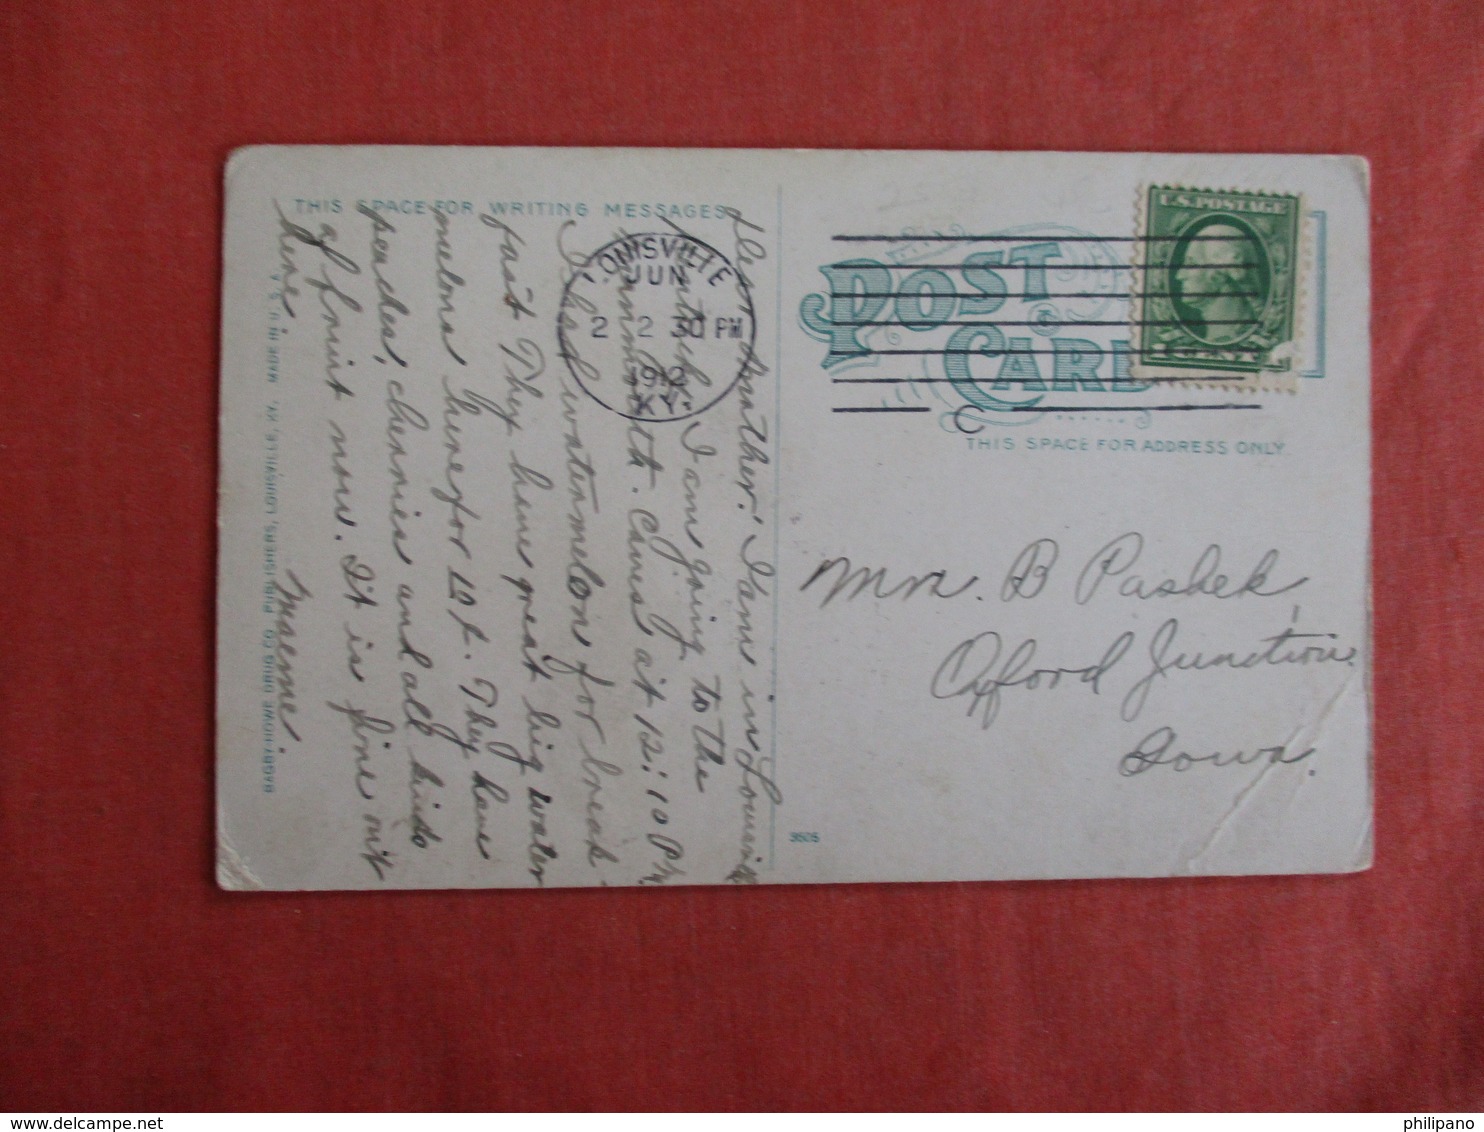 THIS SPACE FOR WRITING MESSAGES
Dear Mother: I am in Louisville
Kentucky. I am going to the
Mammoth Caves at 12:10 PM.
I had watermelon for break-
fast They have great big water
melons here for 10¢. They have
peaches, cherries and all kinds
of fruit now. It is fine out
here.
Maeme.
BAGBY-HOWE DRUG CO. PUBLISHERS, LOUISVILLE, KY. MADE IN U. S. A.
LOUISVILLE
JUN
2 2 30 PM
1912
KY.
POST
CARD
C
U.S. POSTAGE
1 CENT 1
THIS SPACE FOR ADDRESS ONLY
Mrs. B Pashek,
Oxford Junction
Iowa.
3505
philipano
delcampe.net